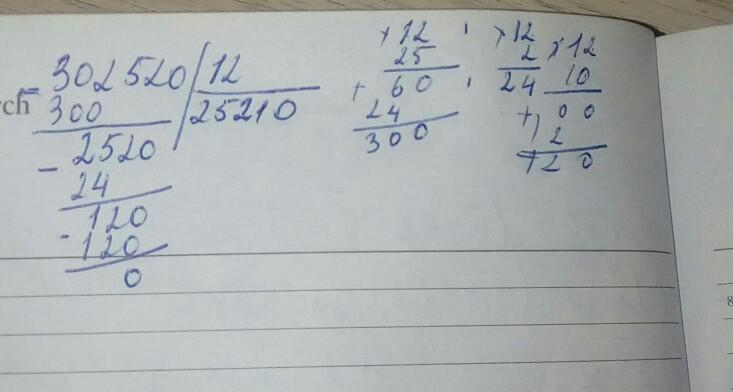 - 302520 | 12
300 | 25210
- 2520
24
- 120
120
0
× 12
25
+ 60
24
300
× 12
2
24
× 12
10
+ 00
12
120
rch
8